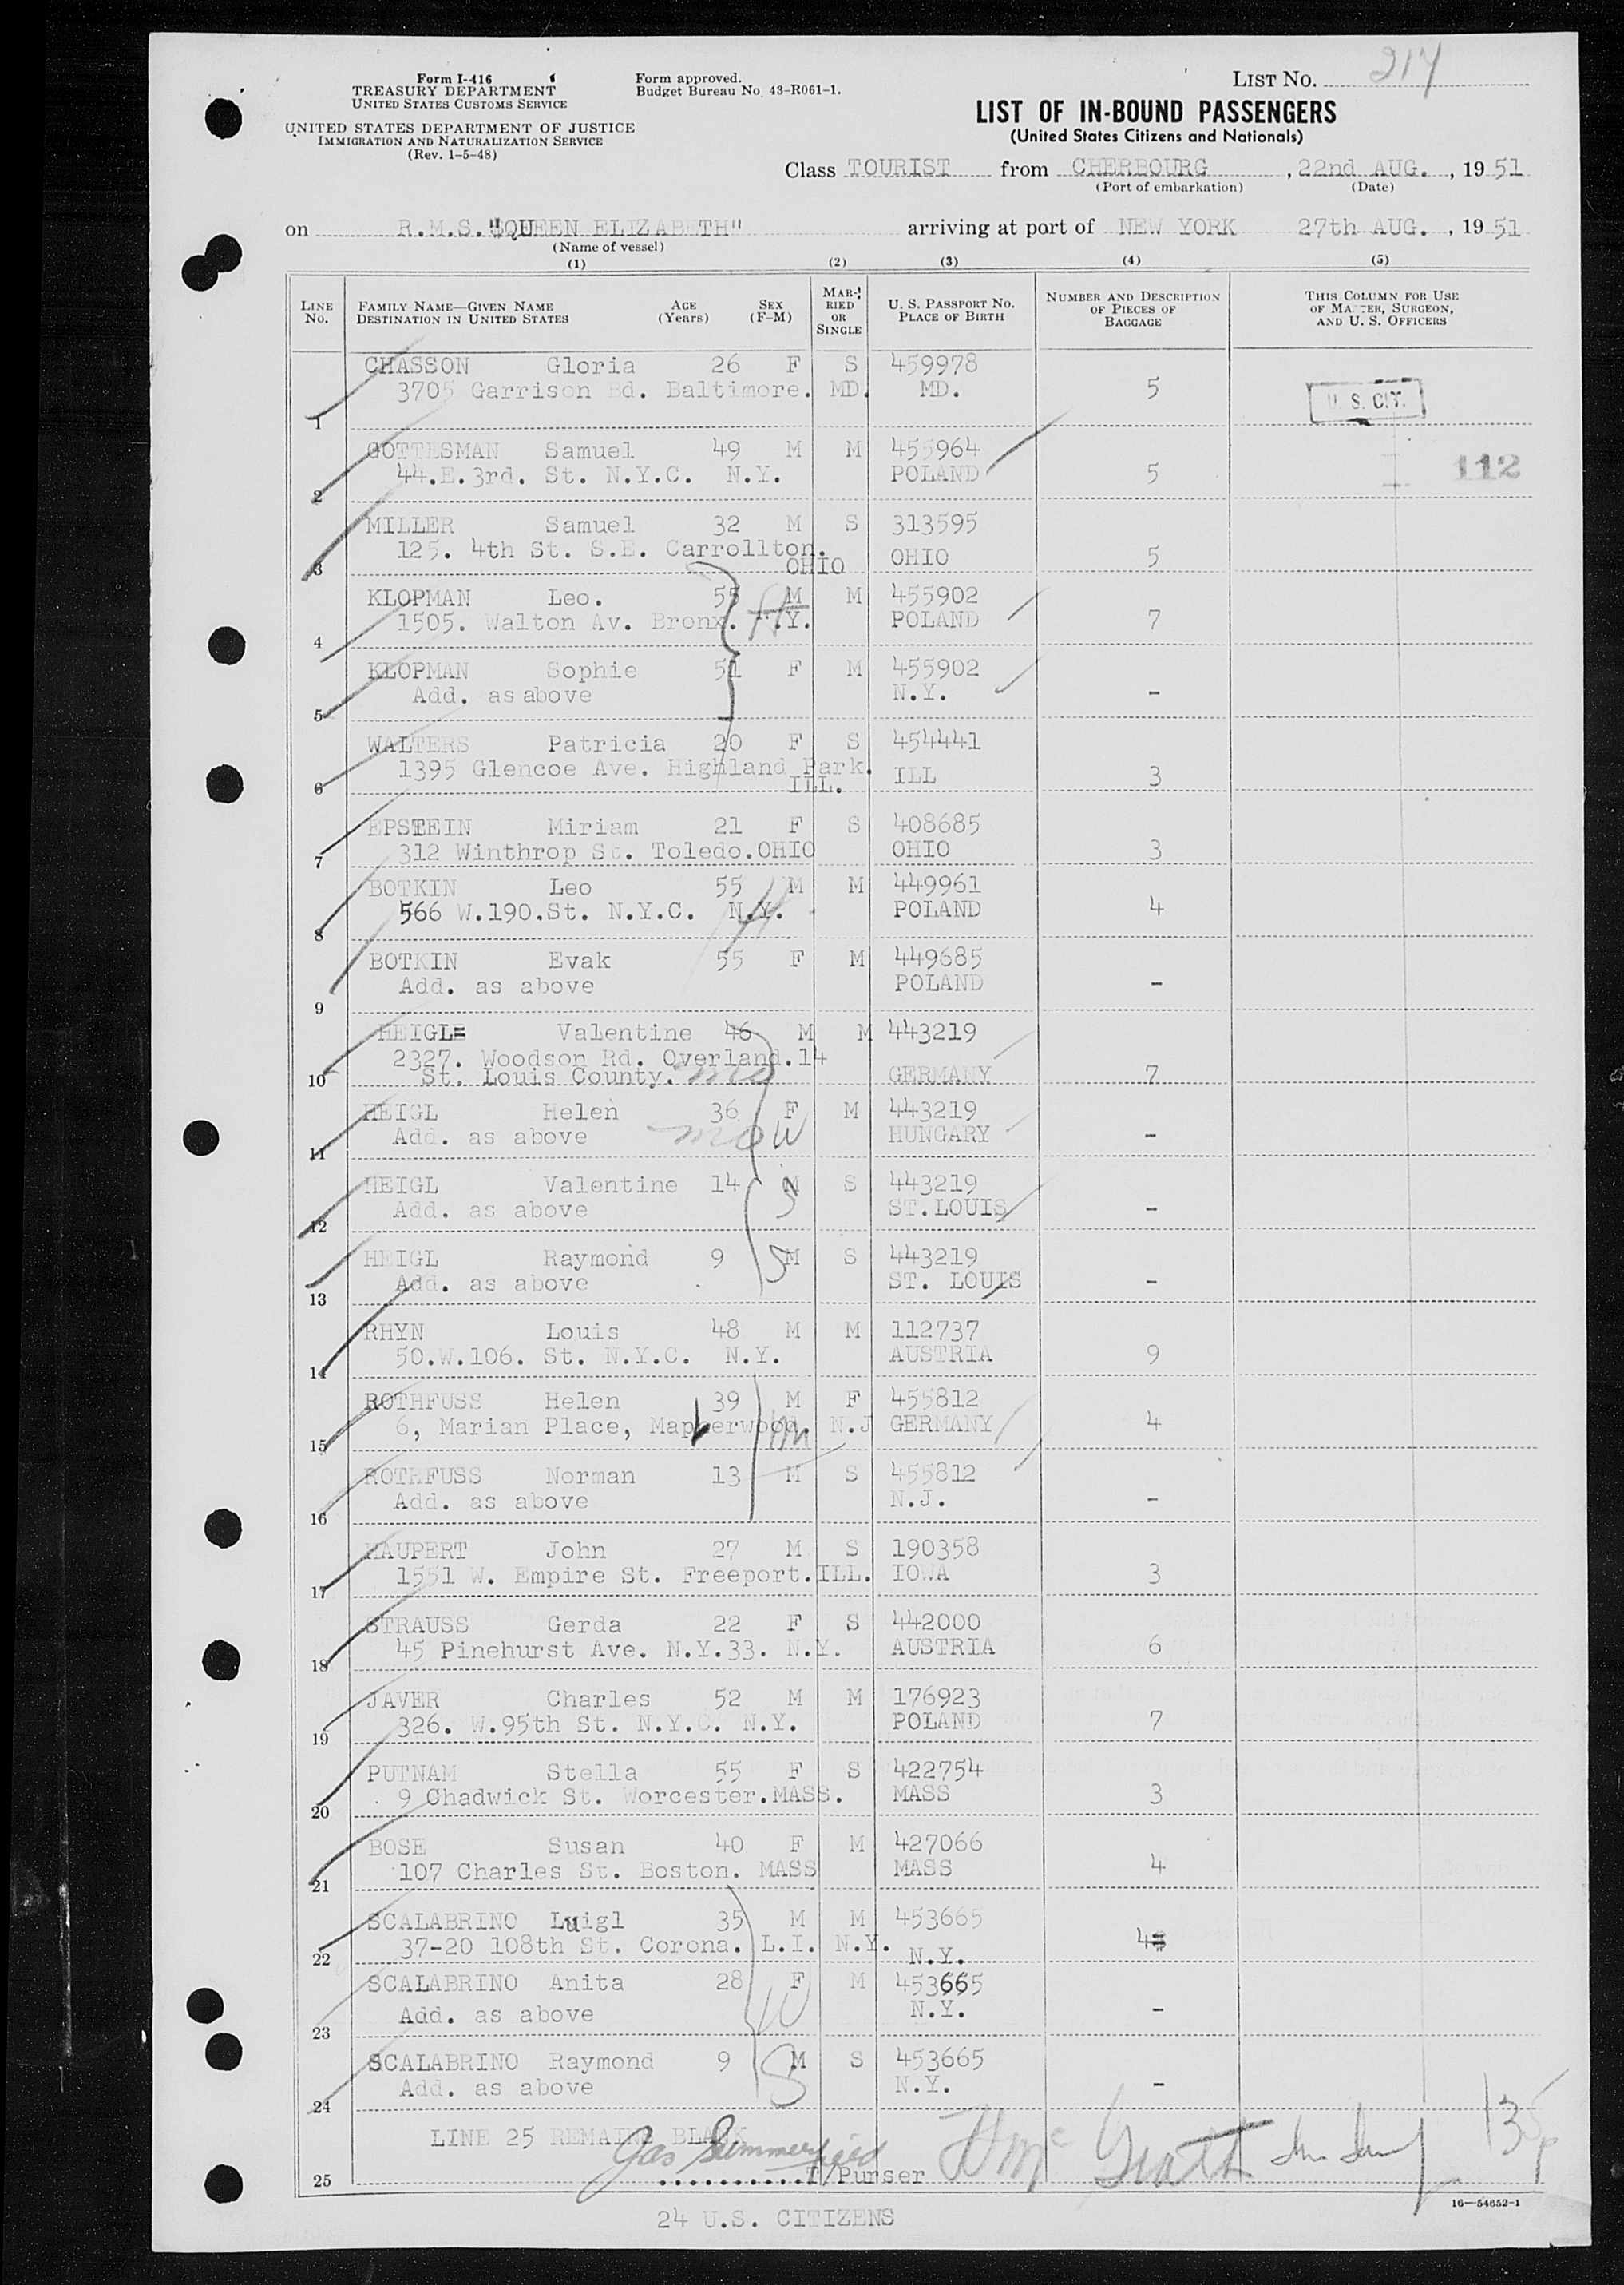 Form I-416
TREASURY DEPARTMENT
UNITED STATES CUSTOMS SERVICE
UNITED STATES DEPARTMENT OF JUSTICE
IMMIGRATION AND NATURALIZATION SERVICE
(Rev. 1-5-48)
Form approved.
Budget Bureau No. 43-R061-1.
LIST NO. 217
LIST OF IN-BOUND PASSENGERS
(United States Citizens and Nationals)
Class TOURIST from CHERBOURG, 22nd AUG., 1951
(Port of embarkation) (Date)
on R.M.S."QUEEN ELIZABETH" arriving at port of NEW YORK 27th AUG., 1951
(Name of vessel)
(1) (2) (3) (4) (5)
LINE NO. FAMILY NAME—GIVEN NAME DESTINATION IN UNITED STATES AGE (Years) SEX (F-M) MARRIED OR SINGLE U. S. PASSPORT NO. PLACE OF BIRTH NUMBER AND DESCRIPTION OF PIECES OF BAGGAGE THIS COLUMN FOR USE OF MASTER, SURGEON, AND U. S. OFFICERS
CHASSON Gloria 26 F S 459978
3705 Garrison Bd. Baltimore. MD. MD. 5 U. S. CIT.
1
GOTTESMAN Samuel 49 M M 455964
44.E.3rd. St. N.Y.C. N.Y. POLAND 5 112
2
MILLER Samuel 32 M S 313595
125. 4th St. S.E. Carrollton. OHIO OHIO 5
3
KLOPMAN Leo. 55 M M 455902
1505. Walton Av. Bronx. .Y. POLAND 7
4
KLOPMAN Sophie 51 F M 455902
Add. as above N.Y. -
5
WALTERS Patricia 20 F S 454441
1395 Glencoe Ave. Highland Park. ILL. ILL 3
6
EPSTEIN Miriam 21 F S 408685
312 Winthrop St. Toledo.OHIO OHIO 3
7
BOTKIN Leo 55 M M 449961
566 W.190.St. N.Y.C. N.Y. POLAND 4
8
BOTKIN Evak 55 F M 449685
Add. as above POLAND -
9
HEIGL Valentine 46 M M 443219
2327. Woodson Rd. Overland.14
St. Louis County. mo GERMANY 7
10
HEIGL Helen 36 F M 443219
Add. as above mo W HUNGARY -
11
HEIGL Valentine 14 M S 443219
Add. as above S ST.LOUIS -
12
HEIGL Raymond 9 M S 443219
Add. as above S ST. LOUIS -
13
RHYN Louis 48 M M 112737
50.W.106. St. N.Y.C. N.Y. AUSTRIA 9
14
ROTHFUSS Helen 39 M F 455812
6, Marian Place, Maplerwood. N.J GERMANY 4
15
ROTHFUSS Norman 13 M S 455812
Add. as above N.J. -
16
HAUPERT John 27 M S 190358
1551 W. Empire St. Freeport.ILL. IOWA 3
17
STRAUSS Gerda 22 F S 442000
45 Pinehurst Ave. N.Y.33. N.Y. AUSTRIA 6
18
JAVER Charles 52 M M 176923
326. W.95th St. N.Y.C. N.Y. POLAND 7
19
PUTNAM Stella 55 F S 422754
9 Chadwick St. Worcester.MASS. MASS 3
20
BOSE Susan 40 F M 427066
107 Charles St. Boston. MASS MASS 4
21
SCALABRINO Luigl 35 M M 453665
37-20 108th St. Corona. L.I. N.Y. N.Y. 4
22
SCALABRINO Anita 28 F M 453665
Add. as above W N.Y. -
23
SCALABRINO Raymond 9 M S 453665
Add. as above S N.Y. -
24
LINE 25 REMAINS BLANK
Jas Summerfield
T/Purser
25
16—54652-1
24 U.S. CITIZENS